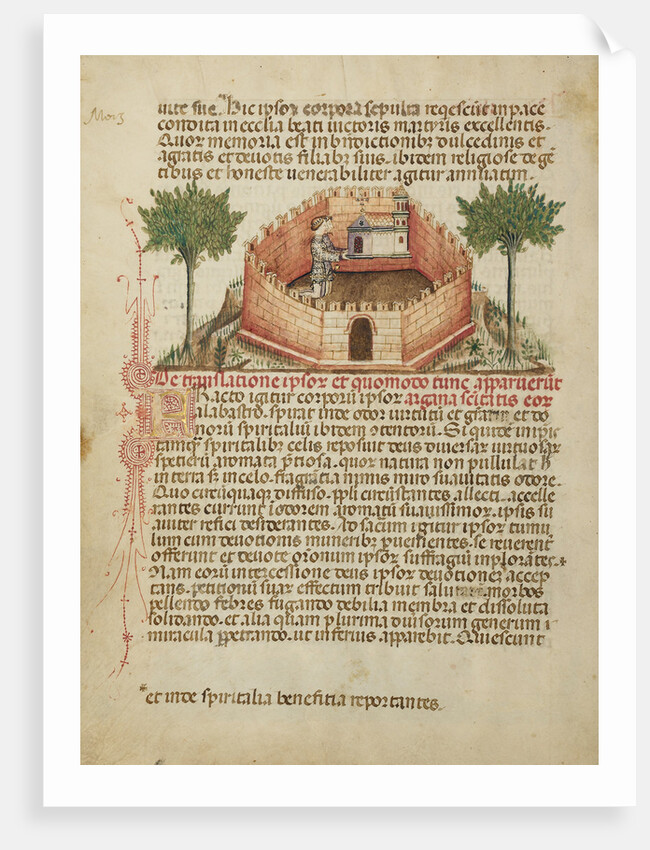 uite sue. Hic ipsoꝝ corpora sepulta reqescūt in pace
condita in ecclia beati uictoris martyris excellentis.
Quoꝝ memoria est in bndictionibꝰ dulcedinis et
a gratis et deuotis filiabꝰ suis. ibidem religiose degē
tibus et honeste uenerabiliter agitur annuatim.
De translatione ipsoꝝ et quomodo tunc apparuerūt
Facto igitur corporū ipsoꝝ
alabastro. spirat inde odor uirtutū et gratiaꝝ et do
noꝝ spiritaliū ibidem
spiritalibꝰ celis reposuit deus diuersaꝝ
spetierū aromata p̄tiosa. quoꝝ natura non pullulat
in terra in celo. fragrātia nimis miro suauitatis odore.
Quo circūquaqꝫ diffuso. ppli circūstantes. allecti. accelle
rantes currunt ī odorem aromatū suauissimoꝝ. ipsis su
auiter refici desiderantes. Ad sacum igitur ipsoꝝ tumu
lum cum deuotionis muneribꝰ se reuerent̄
offerunt et deuote ipsoꝝ suffragiū inplorātes.
Nam eorū intercessione deus ipsoꝝ deuotionē accep
tans. petitionū suaꝝ effectum tribuit salutare. morbos
pellendo febres fugando debilia membra et dissoluta
solidando. et alia quam plurima diuisorum generum
miracula ut inferius apparebit. Quiescunt
et inde spiritalia benefitia reportantes.